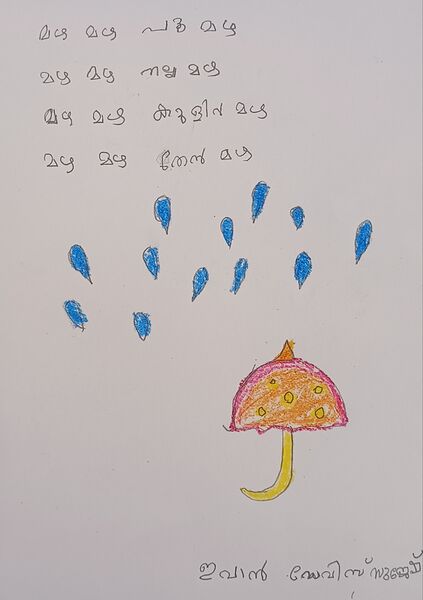 മഴ മഴ പുതു മഴ
മഴ മഴ നല്ല മഴ
മഴ മഴ കുളിര് മഴ
മഴ മഴ തേൻ മഴ
ഇവാൻ ഡേവിസ് സുജേഷ്